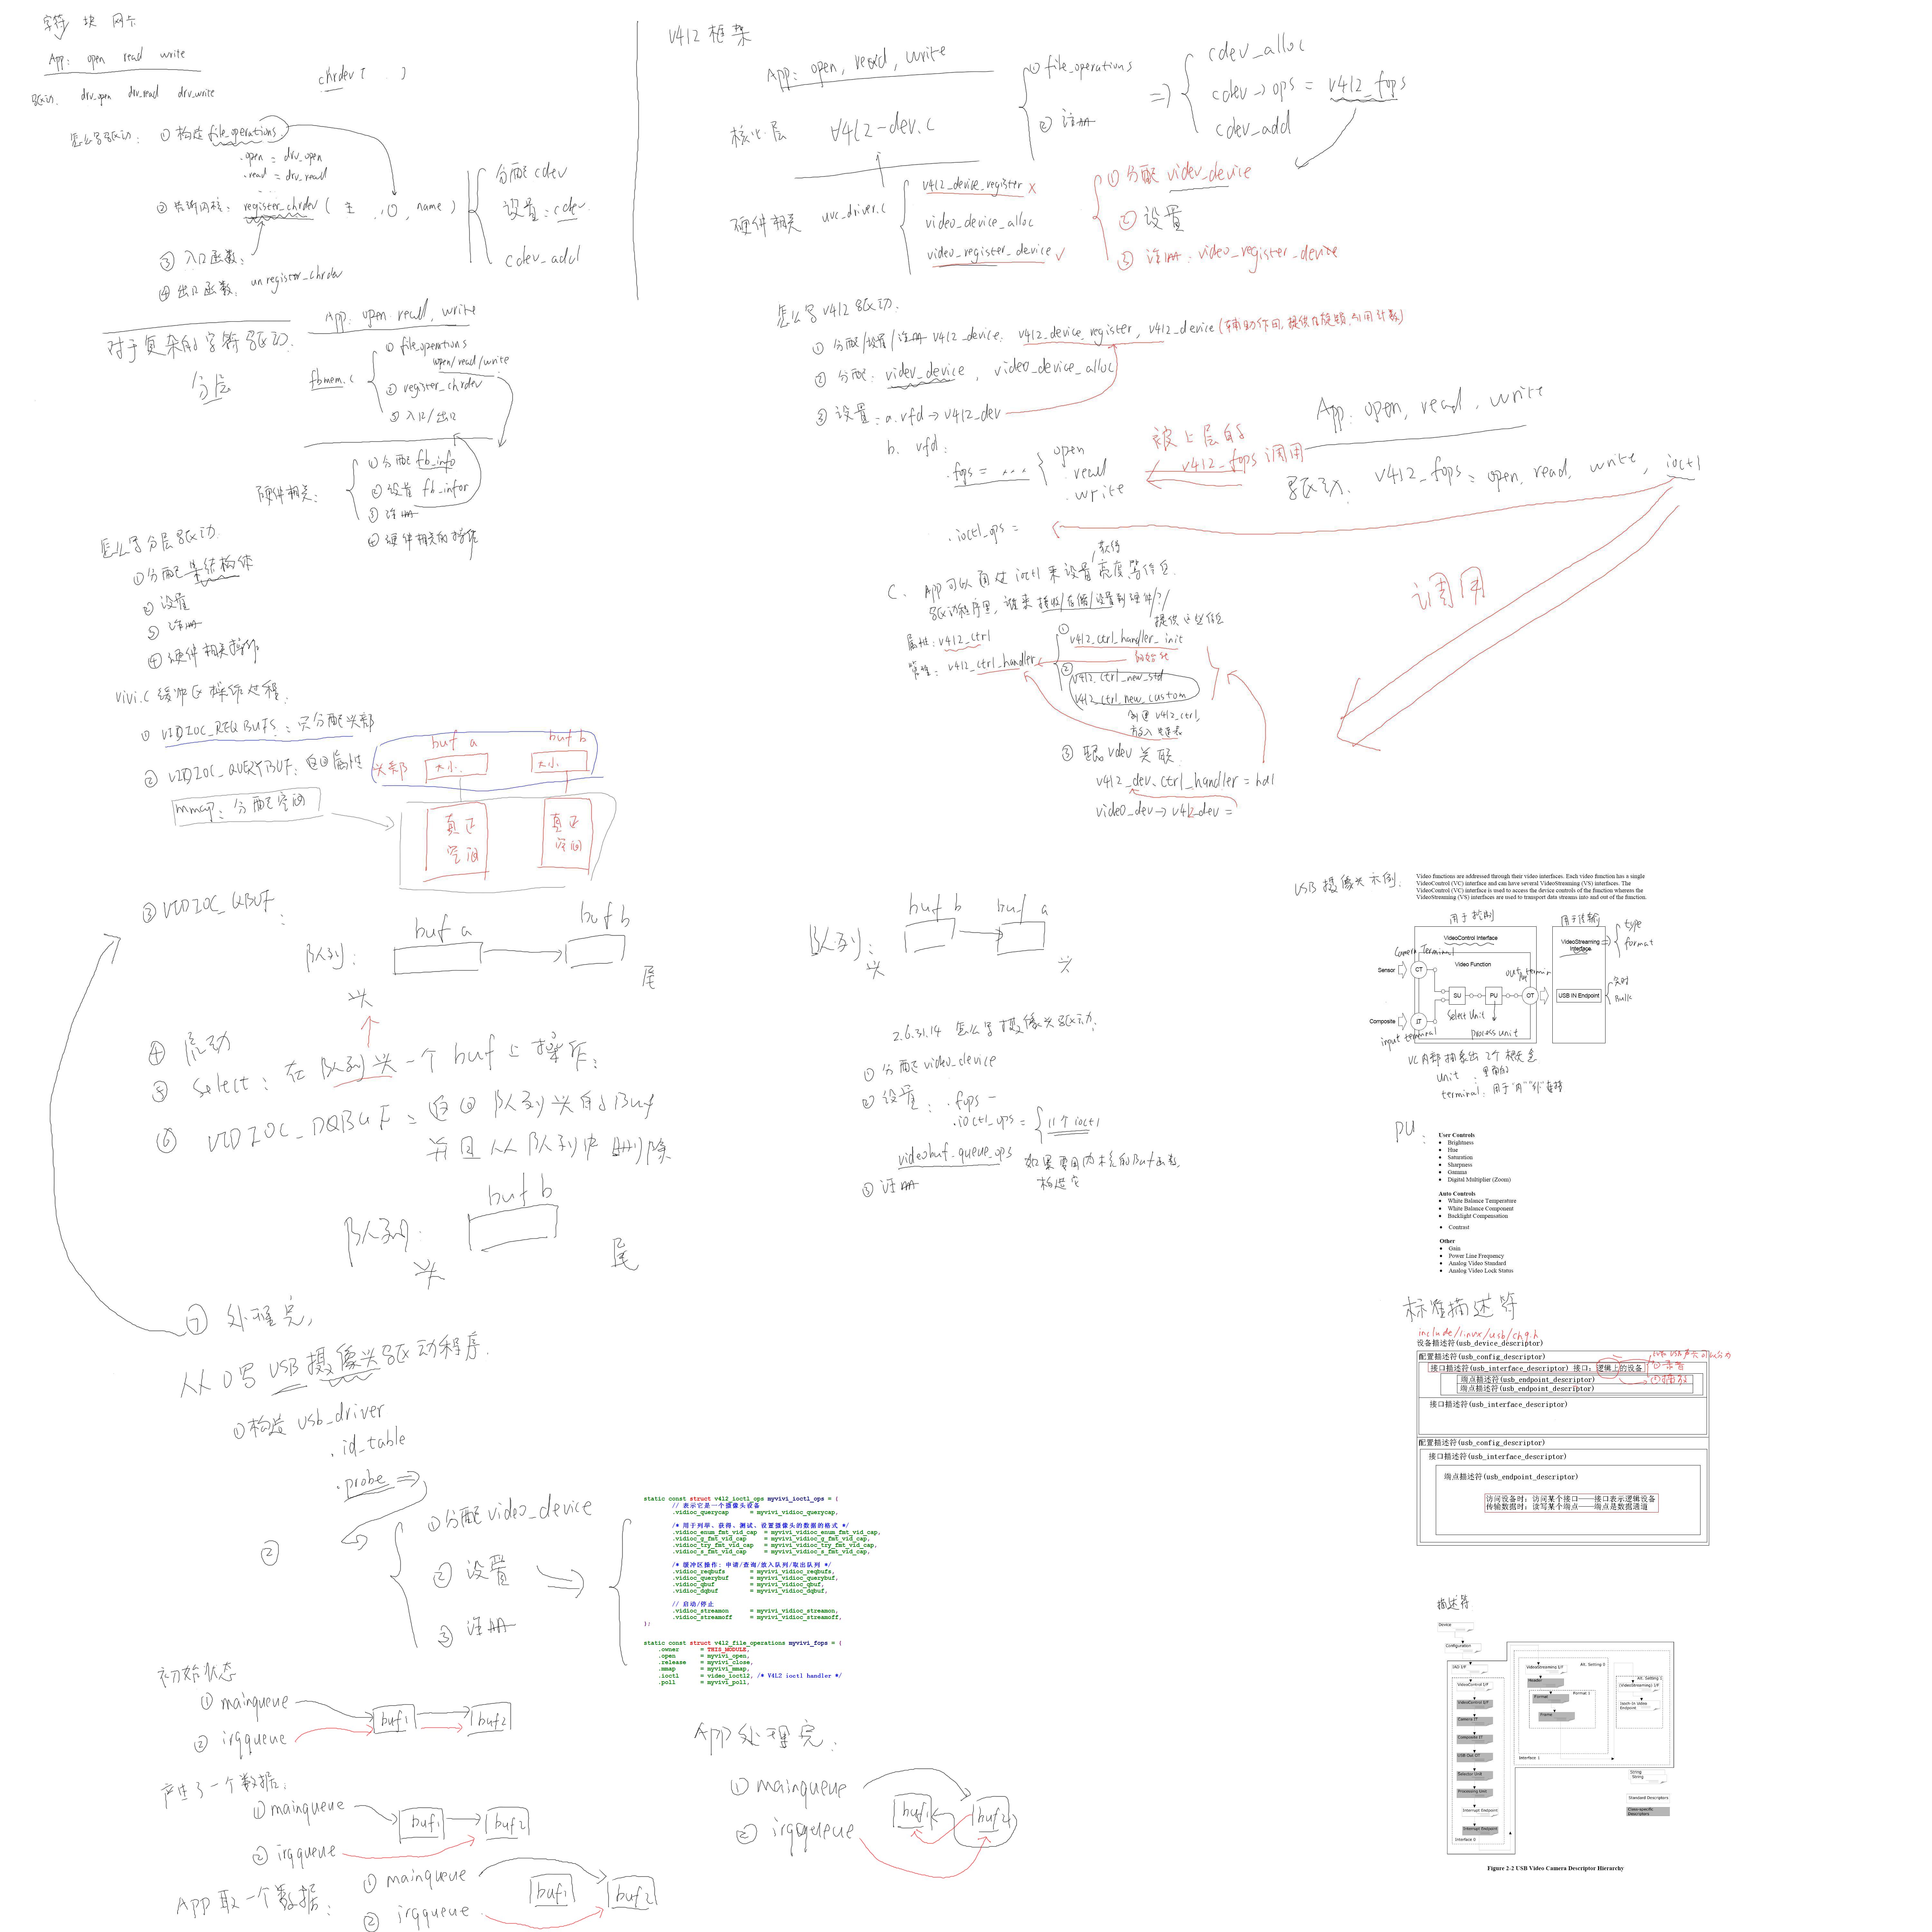 字符 块 网卡
App: open read write
驱动: drv_open drv_read drv_write
chrdev ( )
怎么写驱动: ① 构造 file_operations
.open = drv_open
.read = drv_read
② 告诉内核: register_chrdev ( 主, 0, name )
③ 入口函数:
④ 出口函数: unregister_chrdev
分配 cdev
设置: cdev
cdev_add
对于复杂的字符驱动:
分层
App: open read, write
fbmem.c
① file_operations
open/read/write
② register_chrdev
③ 入口/出口
硬件相关:
① 分配 fb_info
② 设置 fb_infor
③ 注册
④ 硬件相关的操作
怎么写分层驱动:
① 分配某结构体
② 设置
③ 注册
④ 硬件相关操作
V4l2 框架
App: open, read, write
核心层 V4l2-dev.c
① file_operations
② 注册
=> cdev_alloc
cdev->ops = v4l2_fops
cdev_add
硬件相关 uvc_driver.c
v4l2_device_register x
video_device_alloc
video_register_device ✓
① 分配 video_device
② 设置
③ 注册: video_register_device
怎么写v4l2驱动:
① 分配/设置/注册 v4l2_device. v4l2_device_register, v4l2_device (辅助作用, 提供自旋锁, 引用计数)
② 分配: video_device, video_device_alloc
③ 设置: a. vfd->v4l2_dev
b. vfd:
.fops = ...
open
read
write
被上层的
v4l2_fops 调用
.ioctl_ops =
App: open, read, write
驱动: v4l2_fops = open, read, write, ioctl
调用
获得
c. App可以通过 ioctl 来设置 亮度等信息
驱动程序里, 谁来接收/存储/设置到硬件/?/
提供这些信息
属性: v4l2_ctrl
管理: v4l2_ctrl_handler
① v4l2_ctrl_handler_init
初始化
② v4l2_ctrl_new_std
v4l2_ctrl_new_custom
创建 v4l2_ctrl,
放入链表
③ 跟vdev关联
v4l2_dev.ctrl_handler = hdl
video_dev->v4l2_dev =
vivi.c 缓冲区操作过程:
① VIDIOC_REQBUFS: 只分配头部
② VIDIOC_QUERYBUF: 返回属性
buf a buf b
头部 大小 大小
mmap: 分配空间
真正 真正
空间 空间
③ VIDIOC_QBUF
:
buf a buf b
队列:
头 尾
buf b buf a
队列:
头 头
④ 启动
⑤ Select: 在队列头一个buf上操作:
⑥ VIDIOC_DQBUF: 返回队列头的Buf
并且从队列中删除
buf b
队列:
头 尾
⑦ 处理完,
2.6.31.14 怎么写摄像头驱动:
① 分配 video_device
② 设置: .fops -
.ioctl_ops = 11个 ioctl
videobuf_queue_ops 如果要用内核的Buf函数,
构造它
③ 注册
从0写USB摄像头驱动程序.
① 构造 usb_driver
.id_table
.probe =>
②
① 分配 video_device
② 设置
③ 注册
static const struct v4l2_ioctl_ops myvivi_ioctl_ops = {
// 表示它是一个摄像头设备
.vidioc_querycap = myvivi_vidioc_querycap,
/* 用于列举、获得、测试、设置摄像头的数据的格式 */
.vidioc_enum_fmt_vid_cap = myvivi_vidioc_enum_fmt_vid_cap,
.vidioc_g_fmt_vid_cap = myvivi_vidioc_g_fmt_vid_cap,
.vidioc_try_fmt_vid_cap = myvivi_vidioc_try_fmt_vid_cap,
.vidioc_s_fmt_vid_cap = myvivi_vidioc_s_fmt_vid_cap,
/* 缓冲区操作: 申请/查询/放入队列/取出队列 */
.vidioc_reqbufs = myvivi_vidioc_reqbufs,
.vidioc_querybuf = myvivi_vidioc_querybuf,
.vidioc_qbuf = myvivi_vidioc_qbuf,
.vidioc_dqbuf = myvivi_vidioc_dqbuf,
// 启动/停止
.vidioc_streamon = myvivi_vidioc_streamon,
.vidioc_streamoff = myvivi_vidioc_streamoff,
};
static const struct v4l2_file_operations myvivi_fops = {
.owner = THIS_MODULE,
.open = myvivi_open,
.release = myvivi_close,
.mmap = myvivi_mmap,
.ioctl = video_ioctl2, /* V4L2 ioctl handler */
.poll = myvivi_poll,
初始状态
① mainqueue
② irqqueue
buf1 buf2
产生了一个数据:
① mainqueue
② irqqueue
buf1 buf2
App取一个数据:
① mainqueue
② irqqueue
buf1 buf2
App处理完:
① mainqueue
② irqqueue
buf1 buf2
USB摄像头示例:
Video functions are addressed through their video interfaces. Each video function has a single
VideoControl (VC) interface and can have several VideoStreaming (VS) interfaces. The
VideoControl (VC) interface is used to access the device controls of the function whereas the
VideoStreaming (VS) interfaces are used to transport data streams into and out of the function.
用于控制
用于传输
VideoControl Interface
VideoStreaming
Interface
type
format
Camera Terminal
Video Function
Sensor CT SU PU OT
USB IN Endpoint
实时
Bulk
Select Unit
process unit
Composite IT
input terminal
VC内部抽象出2个概念
unit: 里面的
terminal: 用于"内""外"连接
PU:
User Controls
Brightness
Hue
Saturation
Sharpness
Gamma
Digital Multiplier (Zoom)
Auto Controls
White Balance Temperature
White Balance Component
Backlight Compensation
Contrast
Other
Gain
Power Line Frequency
Analog Video Standard
Analog Video Lock Status
标准描述符
include/linux/usb/ch9.h
设备描述符(usb_device_descriptor)
配置描述符(usb_config_descriptor)
接口描述符(usb_interface_descriptor) 接口: 逻辑上的设备
①录音
②播放
端点描述符(usb_endpoint_descriptor)
端点描述符(usb_endpoint_descriptor)
接口描述符(usb_interface_descriptor)
配置描述符(usb_config_descriptor)
接口描述符(usb_interface_descriptor)
端点描述符(usb_endpoint_descriptor)
访问设备时: 访问某个接口——接口表示逻辑设备
传输数据时: 读写某个端点——端点是数据通道
描述符
Device
Configuration
IAD I/F
VideoControl I/F
VideoControl I/F
Camera IT
Composite IT
USB Out OT
Selector Unit
Processing Unit
Interrupt Endpoint
Interrupt Endpoint
Interface 0
VideoStreaming I/F
Alt. Setting 0
Header
Format
Format 1
Frame
Interface 1
Alt. Setting 1
(VideoStreaming) I/F
Isoch In Video
Endpoint
String
String
Standard Descriptors
Class-specific
Descriptors
Figure 2-2 USB Video Camera Descriptor Hierarchy